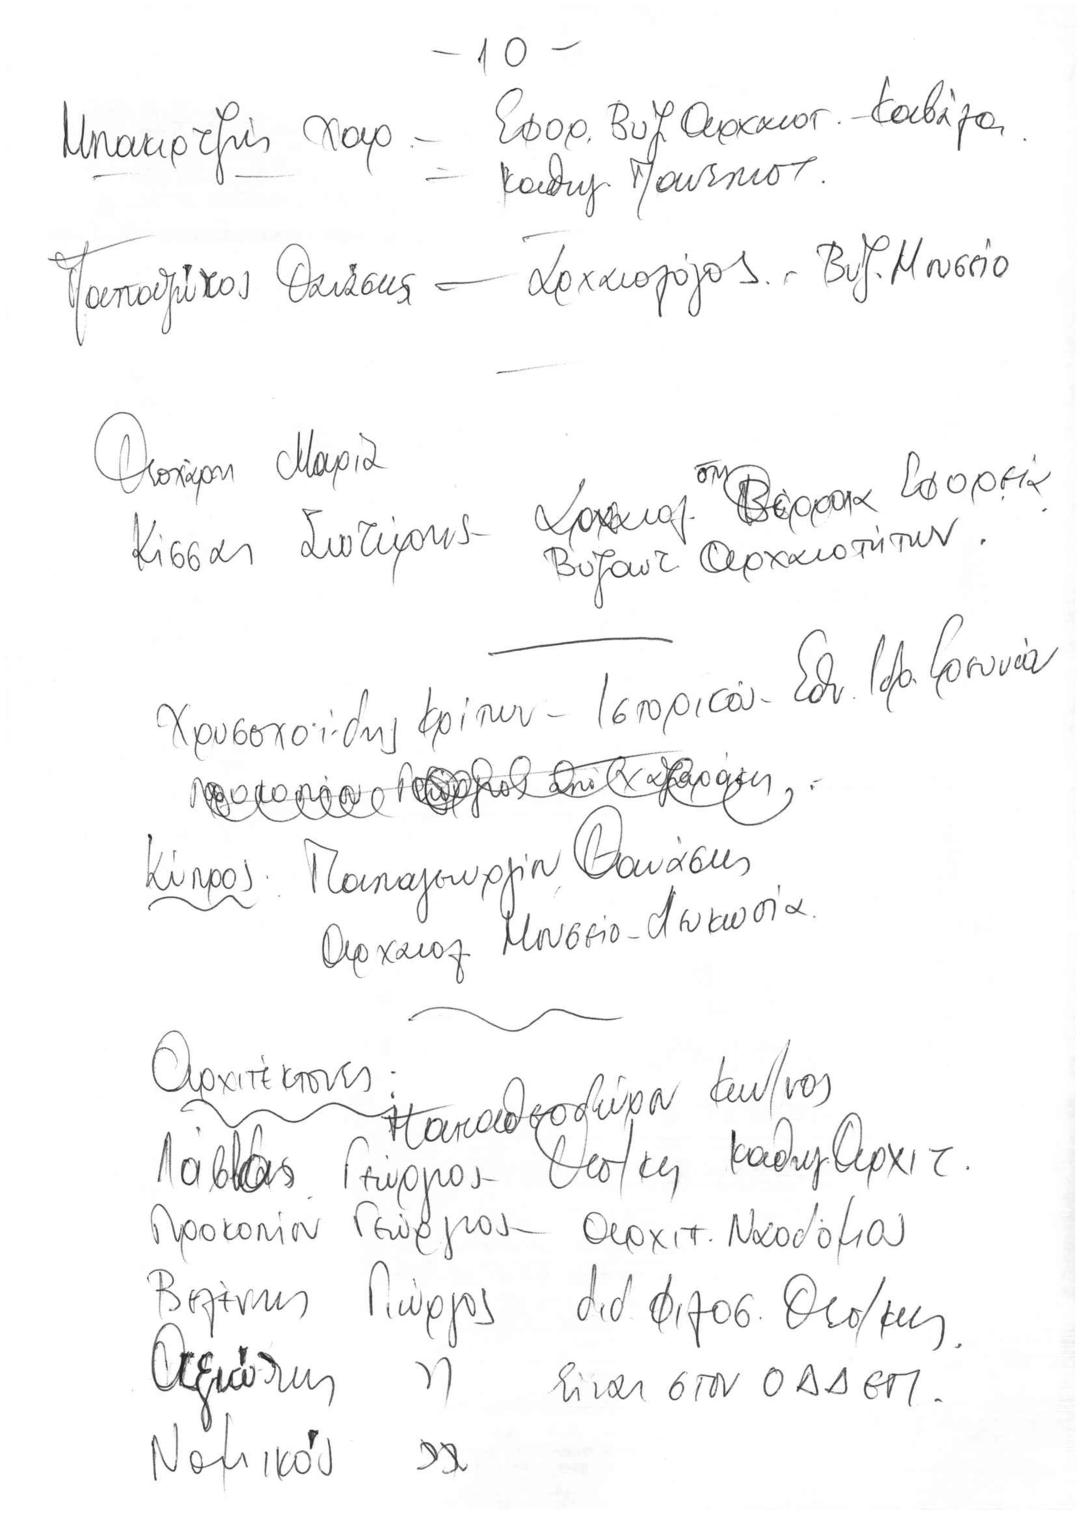 - 10 -
Μπακιρτζής Χαρ. - Εφορ. Βυζ Αρχαιοτ. - Καβάλα.
= Καθηγ. Πανεπιστ.
Παπαζώτος Θανάσης - Αρχαιολόγος. - Βυζ. Μουσείο
Θεοχάρη Μαρία
στη
Κίσσας Σωτήρης - Αρχαιολ. Βέρροια Εφορεία
Βυζαντ Αρχαιοτήτων.
Χρυσοχοΐδης Κρίτων - Ιστορικός - Εθν. Ιδρ. Ερευνών
Προκοπίου Γεώργιος από Χατζαράκη,
Κύπρος: Παπαγεωργίου Θανάσης
Αρχαιολ Μουσείο - Λευκωσία.
Αρχιτέκτονες:
Παπαθεοδώρου Κων/νος
Λάββας Γεώργιος - Θεσ/κη Καθηγ Αρχιτ.
Προκοπίου Γεώργιος - Αρχιτ. Ναοδόμος
Βελένης Γιώργος διδ Φιλοσ. Θεσ/κης.
Αξιώτης η είναι στον ΟΔΔΕΠ.
Νομικός »